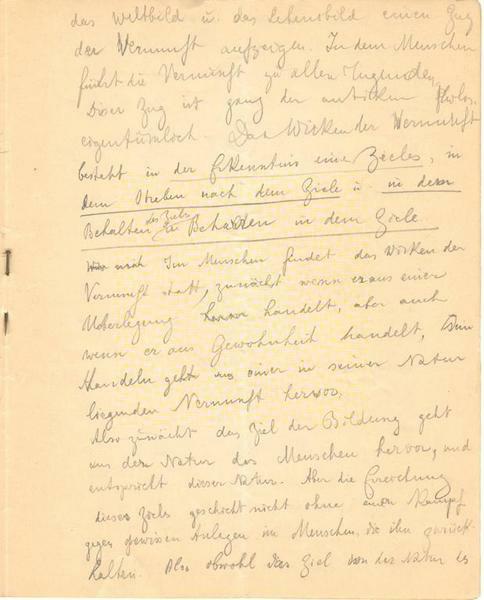 das Weltbild u. das Lebensbild einen Zug
der Vernunft aufzeigen. In dem Menschen
führt die Vernunft zu allen Tugenden,
Dieser Zug ist ganz der antiken Philos.
eigentümlich. Das Wirken der Vernunft
besteht in der Erkenntnis eines Zieles, in
dem Streben nach dem Ziele u. in dem
Behalten des Ziels Beharren in dem Ziele.
Im Menschen findet das Wirken der
Vernunft statt, zunächst wenn er aus einer
Ueberlegung handelt, aber auch
wenn er aus Gewohnheit handelt,
Handeln geht aus einer in seiner Natur
liegenden Vernunft hervor.
Also zunächst das Ziel der Bildung geht
aus der Natur des Menschen hervor, und
entspricht dieser Natur. Aber die Erreichung
dieses Ziels geschieht nicht ohne einen Kampf
gegen gewissen Anlagen im Menschen, die ihn zurück
halten. Also obwohl das Ziel von der Natur des